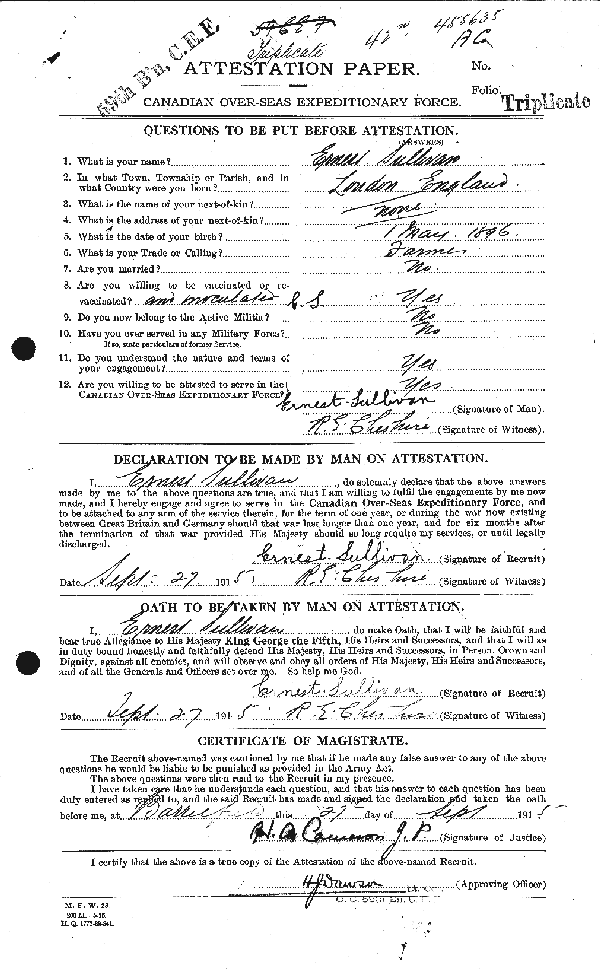 59th B'n, C.E.F.
Triplicate
455635
ATTESTATION PAPER.
No.
Folio.
Triplicate
CANADIAN OVER-SEAS EXPEDITIONARY FORCE.
QUESTIONS TO BE PUT BEFORE ATTESTATION.
(ANSWERS)
1. What is your name? Ernest Sullivan
2. In what Town, Township or Parish, and in
what Country were you born? London England
3. What is the name of your next-of-kin?
4. What is the address of your next-of-kin? none
5. What is the date of your birth? 1 May. 1896
6. What is your Trade or Calling? Farmer
7. Are you married? No.
8. Are you willing to be vaccinated or re-
vaccinated? and inoculated E S Yes
9. Do you now belong to the Active Militia? No
10. Have you ever served in any Military Force? No
If so, state particulars of former Service.
11. Do you understand the nature and terms of
your engagement? Yes
12. Are you willing to be attested to serve in the Yes
CANADIAN OVER-SEAS EXPEDITIONARY FORCE?
Ernest Sullivan (Signature of Man).
R.E. Cheshire (Signature of Witness).
DECLARATION TO BE MADE BY MAN ON ATTESTATION.
I, Ernest Sullivan, do solemnly declare that the above answers
made by me to the above questions are true, and that I am willing to fulfil the engagements by me now
made, and I hereby engage and agree to serve in the Canadian Over-Seas Expeditionary Force, and
to be attached to any arm of the service therein, for the term of one year, or during the war now existing
between Great Britain and Germany should that war last longer than one year, and for six months after
the termination of that war provided His Majesty should so long require my services, or until legally
discharged.
Ernest Sullivan (Signature of Recruit)
Date Sept. 27 1915 R.E. Cheshire (Signature of Witness)
OATH TO BE TAKEN BY MAN ON ATTESTATION.
I, Ernest Sullivan do make Oath, that I will be faithful and
bear true Allegiance to His Majesty King George the Fifth, His Heirs and Successors, and that I will as
in duty bound honestly and faithfully defend His Majesty, His Heirs and Successors, in Person, Crown and
Dignity, against all enemies, and will observe and obey all orders of His Majesty, His Heirs and Successors,
and of all the Generals and Officers set over me. So help me God.
Ernest Sullivan (Signature of Recruit)
Date Sept. 27 1915 R.E. Cheshire (Signature of Witness)
CERTIFICATE OF MAGISTRATE.
The Recruit above-named was cautioned by me that if he made any false answer to any of the above
questions he would be liable to be punished as provided in the Army Act.
The above questions were then read to the Recruit in my presence.
I have taken care that he understands each question, and that his answer to each question has been
duly entered as replied to, and the said Recruit has made and signed the declaration and taken the oath
before me, at Barriefield this 27 day of Sept 1915
H A Cameron J.P. (Signature of Justice)
I certify that the above is a true copy of the Attestation of the above-named Recruit.
H J Dawson (Approving Officer)
M. F. W. 23.